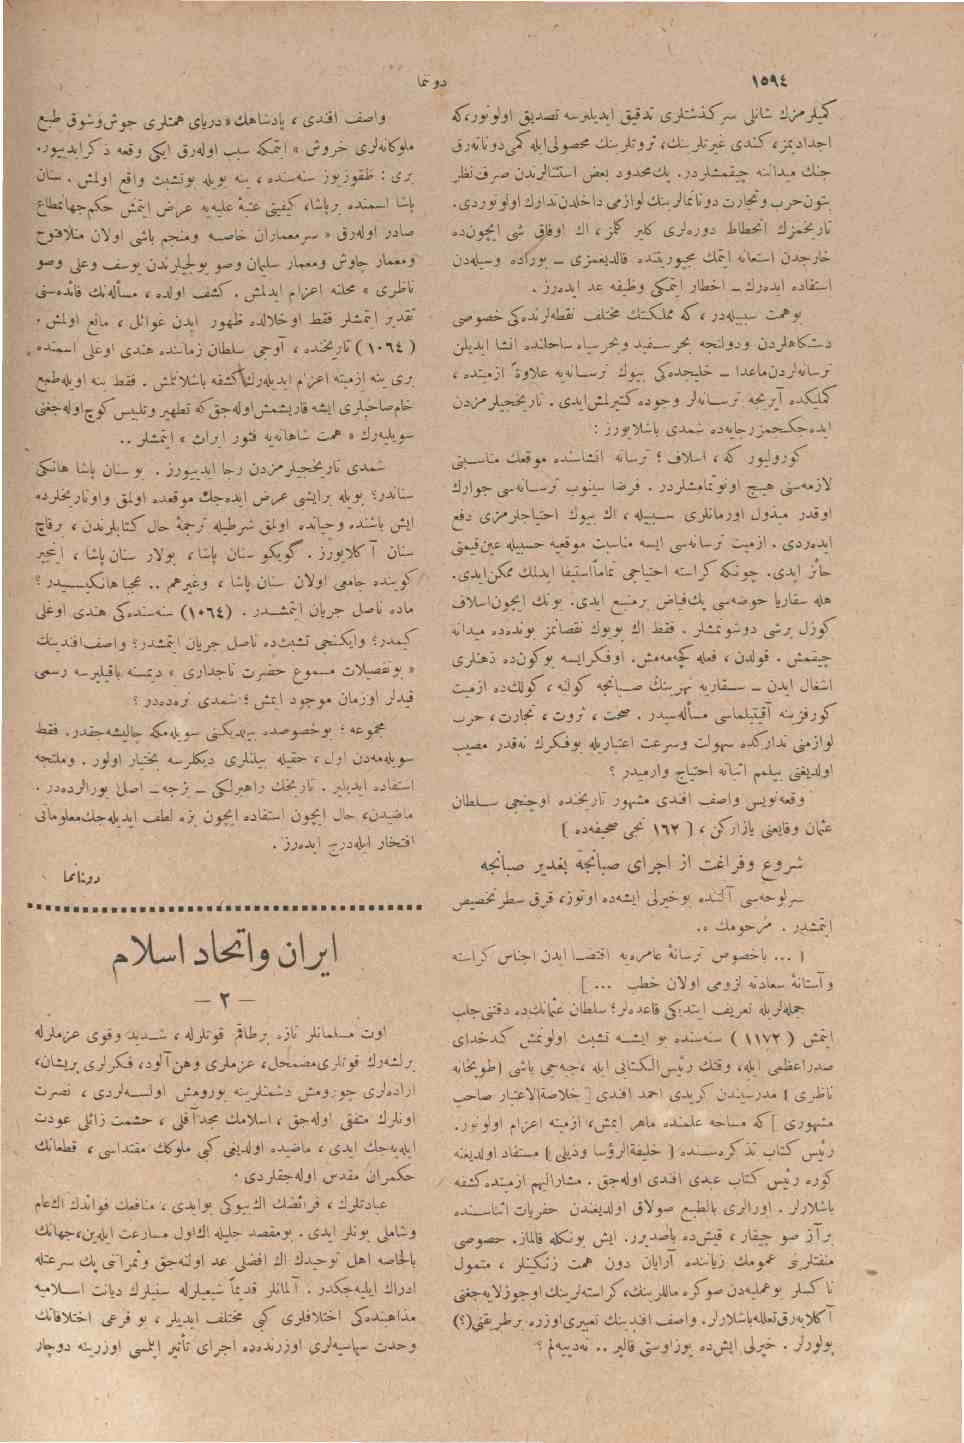 ١٥٩٤
دوننما
كميلرمزك شانلى سركذشتلرى تدقيق ايديليرسه تصديق اولونور، كه
اجداديمز، كندى غيرتلرينك، ثروتلرينك محصولى ايله كمى دوناته‌رق
جنك ميداننه چيقمشلردر. پك محدود بعض استثنالرندن صرف نظر
بتون حرب وتجارت دونانمالرينك لوازمى داخلدن تدارك اولونوردى.
تاريخمزك انحطاط دوره‌لرى كلير كلمز، اك اوفاق شى ايچون ده
خارجدن استعانه ايتمك مجبوريتنده قالديغمزى ــ بوراده وسيله‌دن
استفاده ايده‌رك ــ اخطار ايتمكى وظيفه عد ايده‌رز .
بوهمت سببيله‌در، كه مملكتك مختلف نقطه‌لرنده‌كى خصوصى
دستكاهلردن ودولتجه بحر سفيد وبحر سياه ساحلنده انشا ايديلن
ترسانه‌لردن ماعدا ــ خليجده‌كى بيوك ترسانه‌يه علاوةً ازميتده ،
كمليكده آيريجه ترسانه‌لر وجوده كتيرلمش ايدى . تاريخجيلرمزدن
ايده‌جكمز رجايه‌ده شمدى باشلايورز :
كورولیور كه ، اسلاف ؛ ترسانه انشاسنده موقعك مناسبتى
لازمه‌سنى هيچ اونوتمامشلردر . فرضا سينوب ترسانه‌سى جوارك
اوقدر مبذول اورمانلرى سببيله ، اك بيوك احتياجلرمزى دفع
ايده‌ردى . ازميت ترسانه‌سى ايسه مناسبت موقعيه حسبيله عين قيمتى
حائز ايدى. چونكه كراسته احتياجى تماماً استيفا ايدلمك ممكن ايدى.
هله سقاريا حوضه‌سى پك فياض برمنبع ايدى. بونك ايچون اسلاف
كوزل برشى دوشونمشلر . فقط اك بويوك نقصانمز بونده‌ده ميدانه
چيقمش . قولدن ، فعله كچه‌مه‌مش. اوفكر ايسه بوكون ده ذهنلرى
اشغال ايدن ــ سقاريه نهرينك صبانجه كولنه ، كولك‌ده ازميت
كورفزينه آقيتيلماسى مسأله‌سيدر . صحت ، ثروت ، تجارت ، حرب
لوازمنى تداركده سهولت وسرعت اعتباريله بوفكرك نه‌قدر مصيب
اولديغنى بيلمم اثباته احتياج وارميدر ؟
وقعه‌نويس واصف افندى مشهور تاريخنده اوچنجى سلطان
عثمان وقايعنى يازاركن ، [ ١٦٢ نجى صحيفه‌ده ]
شروع وفراغت از اجراى صبانجۀ بغدير صبانجه
سرلوحه‌سى آلتنده بوخيرلى ايشه‌ده اوتوز، قرق سطر تخصيص
ايتمشدر . مرحومك ه.
[ ... باخصوص ترسانۀ عامره‌يه اقتضا ايدن اجناس كراسته
وآستانۀ سعادته لزومى اولان حطب ... ]
جمله‌لريله تعريف ايتديكى قاعده‌لر؛ سلطان عثمانك‌ده دقتنى جلب
ايتمش (١١٧٢) سنه‌سنده بو ايشه تشبث اولونمش كدخداى
صدراعظمى ايله، وقتك رئيس الكتابى ايله ، جبه‌جى باشى [طوپخانه
ناظرى] مدرسيندن كريدى احمد افندى [خلاصة الاعتبار صاحب
مشهورى] كه مساحه علمنده ماهر ايمش، ازميته اعزام اولونور.
رئيس كتاب تذكره‌سنده [خليفة الرؤسا وذيلى] مستفاد اولديغنه
كوره رئيس كتاب عبدى افندى اوله‌جق . مشاراليهم ازميتده كشفه
باشلارلر . اورالرى بالطبع صولاق اولديغندن حفريات اثناسنده
برآز صو چيقار ، قيش ده باصديرر. ايش بونكله قالماز. خصوصى
منفعتلرينى عمومك زياننده آرايان دون همت زنكينلر ، متمول
ناكسلر بوعمليه‌دن صوكره ماللرينك ، كراسته‌لرينك اوجوزلايه‌جغنى
آكلايه‌رق تعلله باشلارلر. واصف افندينك تعبيرى اوزره برطريقنى(؟)
بولورلر . خيرلى ايش ده يوزاوستى قالير .. نه‌دييه‌لم ؟
واصف افندى ، پادشاهك «درياى همتلرى جوش وشوق طبع
ملوكانه‌لرى خروش » ايتمكه سبب اوله‌رق ايكى وقعه ذكر ايدييور.
برى : طقوزيوز سنه‌سنده ، ينه بويله بوتشبث واقع اولمش . سنان
پاشا اسمنده برپاشا، كيفيتى عتبۀ عليه‌يه عرض ايتمش حكم جهانمطاع
صادر اوله‌رق « سرمعماران خاصه ومنجم باشى اولان منلا فتوح
ومعمار جاوش ومعمار سليمان وصو يولجيلرندن يوسف وعلى وصو
ناظرى » محلنه اعزام ايدلمش . كشف اولده ، مسأله‌نك فائده‌سنى
تقدير ايتمشلر فقط اوخلالده ظهور ايدن غوائل ، مانع اولمش .
(١٠٦٤) تاريخنده ، آوجى سلطان زماننده هندى اوغلى اسمنده
برى ينه ازميته اعزام ايديله‌رك كشفه باشلاتلمش . فقط ينه اويله طمع
خام صاحبلرى ايشه قاريشمش اوله‌جق كه تطهير وتلبيس كوچ اوله‌جغنى
سويليه‌رك « همت شاهانه‌يه فتور ايراث » ايتمشلر ..
شمدى تاريخجيلرمزدن رجا ايدييورز . بو سنان پاشا هانكى
سناندر؟ بويله برايشى عرض ايده‌جك موقعده اولمق واوتاريخلرده
ايش باشنده وحياتده اولمق شرطيله ترجمۀ حال كتابلرندن ، برقاچ
سنان آكلايورز . كويكو سنان پاشا ، بولار سنان پاشا ، اينجير
كوينده جامعى اولان سنان پاشا ، وغيرهم .. عجبا هانكيسيدر ؟
ماده ناصل جريان ايتمشدر . (١٠٦٤) سنه‌سنده‌كى هندى اوغلى
كيمدر؟ وايكنجى تشبث‌ده ناصل جريان ايتمشدر؟ واصف افندينك
« بوتفصيلات مسموع حضرت تاجدارى » ديمسنه باقيليرسه رسمى
قيدلر اوزمان موجود ايمش ؛ شمدى نره‌ده‌در ؟
مجموعه ؛ بوخصوصده بيلديكنى سويله‌مكه چاليشه‌جقدر. فقط
سويله‌مه‌دن اول ، حقيله بيلنلرى ديكلرسه بختيار اولور . وملتجه
استفاده ايديلير . تاريخك راهبرلكى ــ بزجه ــ اصل بورالرده‌در .
ماضيدن، حال ايچون استفاده ايچون بزه لطف ايديله‌جك معلوماتى
افتخار ايله درج ايده‌رز .
دوننما
ايران واتحاد اسلام
— ٢ —
اوت مسلمانلر تازه برطاقم قوتلرله ، شديد وقوى عزملرله
برلشه‌رك قوتلرى مضمحل، عزملرى وهن آلود، فكرلرى پريشان،
اراده‌لرى چورومش دشمنلرينه يورومش اولسه‌لردى ، نصرت
اونلرك متفقى اوله‌جق ، اسلامك مجد آفلى ، حشمت زائلى عودت
ايليه‌جك ايدى ، ماضيده اولديغى كبى ملوكك مقتداسى ، قطعاتك
حكمران مقدسى اوله‌جقلردى .
عبادتلرك ، فرائضك اك بيوكى بوايدى ، منافعك فوائدك اك عام
وشاملى بونلر ايدى . بومقصد جليله اك اول مسارعت ايله‌ين، جهانك
بالخاصه اهل توحيدك اك افضلى عد اولنه‌جق وثمراتنى پك سرعتله
ادراك ايليه‌جكدر . آلمانلر قديماً شيعيلرله سنيلرك ديانت اسلاميه
مذاهبنده‌كى اختلافلرى كبى مختلف ايديلر ، بو فرعى اختلافاتك
وحدت سياسيه‌لرى اوزرنده‌ده اجراى تأثير ايلمسى اوزرينه دوچار